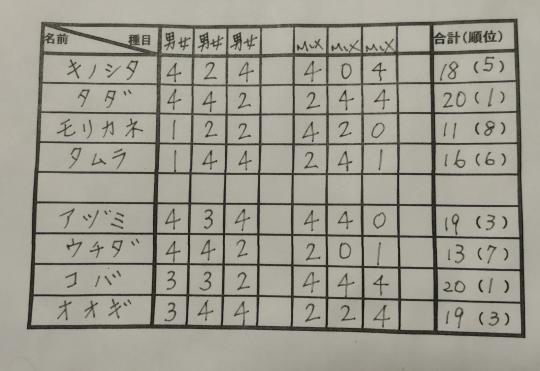 名前 種目 男女 男女 男女 MIX MIX MIX 合計(順位)
キノシタ 4 2 4 4 0 4 18(5)
タダ 4 4 2 2 4 4 20(1)
モリカネ 1 2 2 4 2 0 11(8)
タムラ 1 4 4 2 4 1 16(6)
アヅミ 4 3 4 4 4 0 19(3)
ウチダ 4 4 2 2 0 1 13(7)
コバ 3 3 2 4 4 4 20(1)
オオギ 3 4 4 2 2 4 19(3)